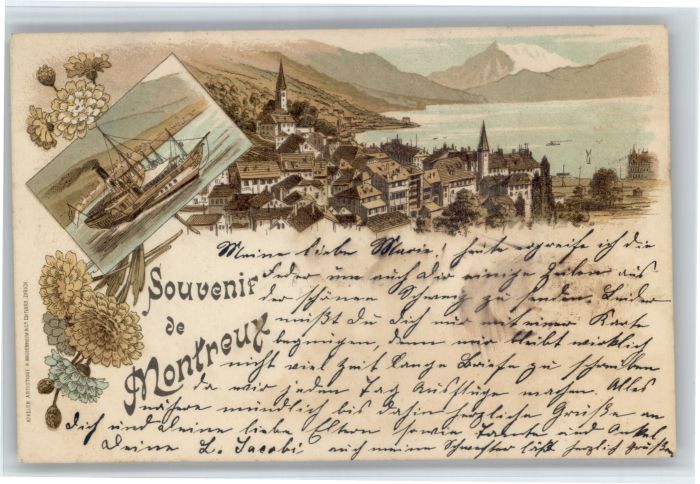 Meine liebe Marie! heute ergreife ich die
Feder um auch Dir einige Zeilen aus
der schönen Schweiz zu senden. Leider
mußt Du Dich nur mit einer Karte
begnügen, denn mir bleibt wirklich
nicht viel Zeit lange Briefe zu schreiben
da wir jeden Tag Ausflüge machen. Alles
nähere mündlich bis dahin herzliche Grüße an
Dich und Deine liebe Eltern sowie Tante und Onkel
Deine L. Jacobi auch meine Schwester läßt herzlich grüßen
Souvenir
de
Montreux
ATELIER ARTISTIQUE H. EDITEURS ZÜRICH